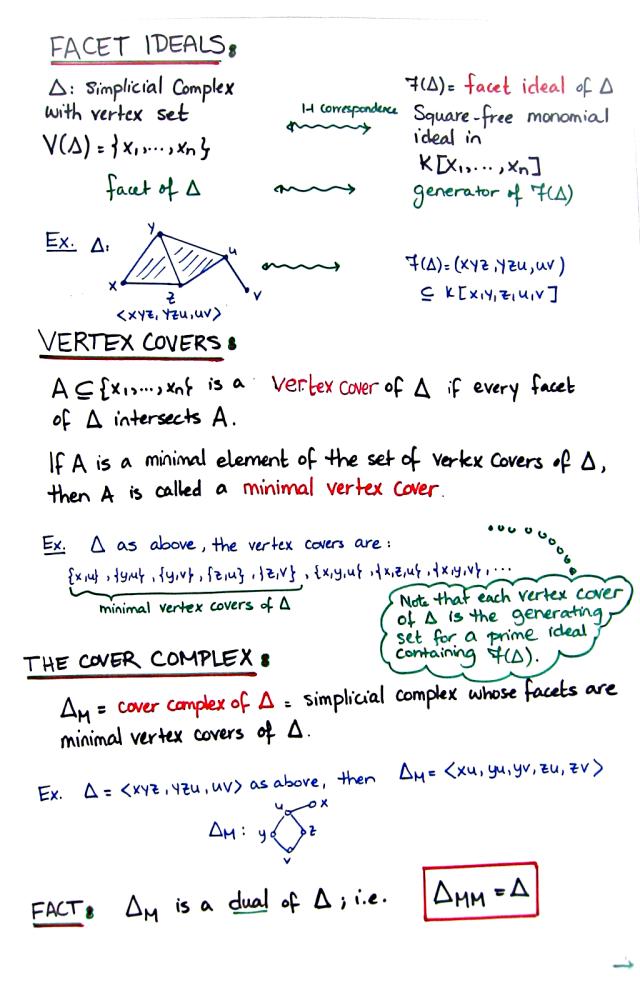 FACET IDEALS:
Δ: Simplicial Complex
with vertex set
V(Δ) = {x₁,...,xₙ}
1-1 correspondence
F(Δ) = facet ideal of Δ
Square-free monomial
ideal in
K[x₁,...,xₙ]
facet of Δ
generator of F(Δ)
Ex. Δ:
y
u
x
z
v
<xyz, yzu, uv>
F(Δ) = (xyz, yzu, uv)
⊆ K[x,y,z,u,v]
VERTEX COVERS:
A ⊆ {x₁,...,xₙ} is a vertex cover of Δ if every facet
of Δ intersects A.
If A is a minimal element of the set of vertex covers of Δ,
then A is called a minimal vertex cover.
Ex. Δ as above, the vertex covers are:
{x,u}, {y,u}, {y,v}, {z,u}, {z,v}, {x,y,u}, {x,z,u}, {x,y,v}, ...
minimal vertex covers of Δ
Note that each vertex cover
of Δ is the generating
set for a prime ideal
containing F(Δ).
THE COVER COMPLEX:
Δ_M = cover complex of Δ = simplicial complex whose facets are
minimal vertex covers of Δ.
Ex. Δ = <xyz, yzu, uv> as above, then Δ_M = <xu, yu, yv, zu, zv>
Δ_M:
u
x
y
z
v
FACT: Δ_M is a dual of Δ; i.e.
Δ_MM = Δ